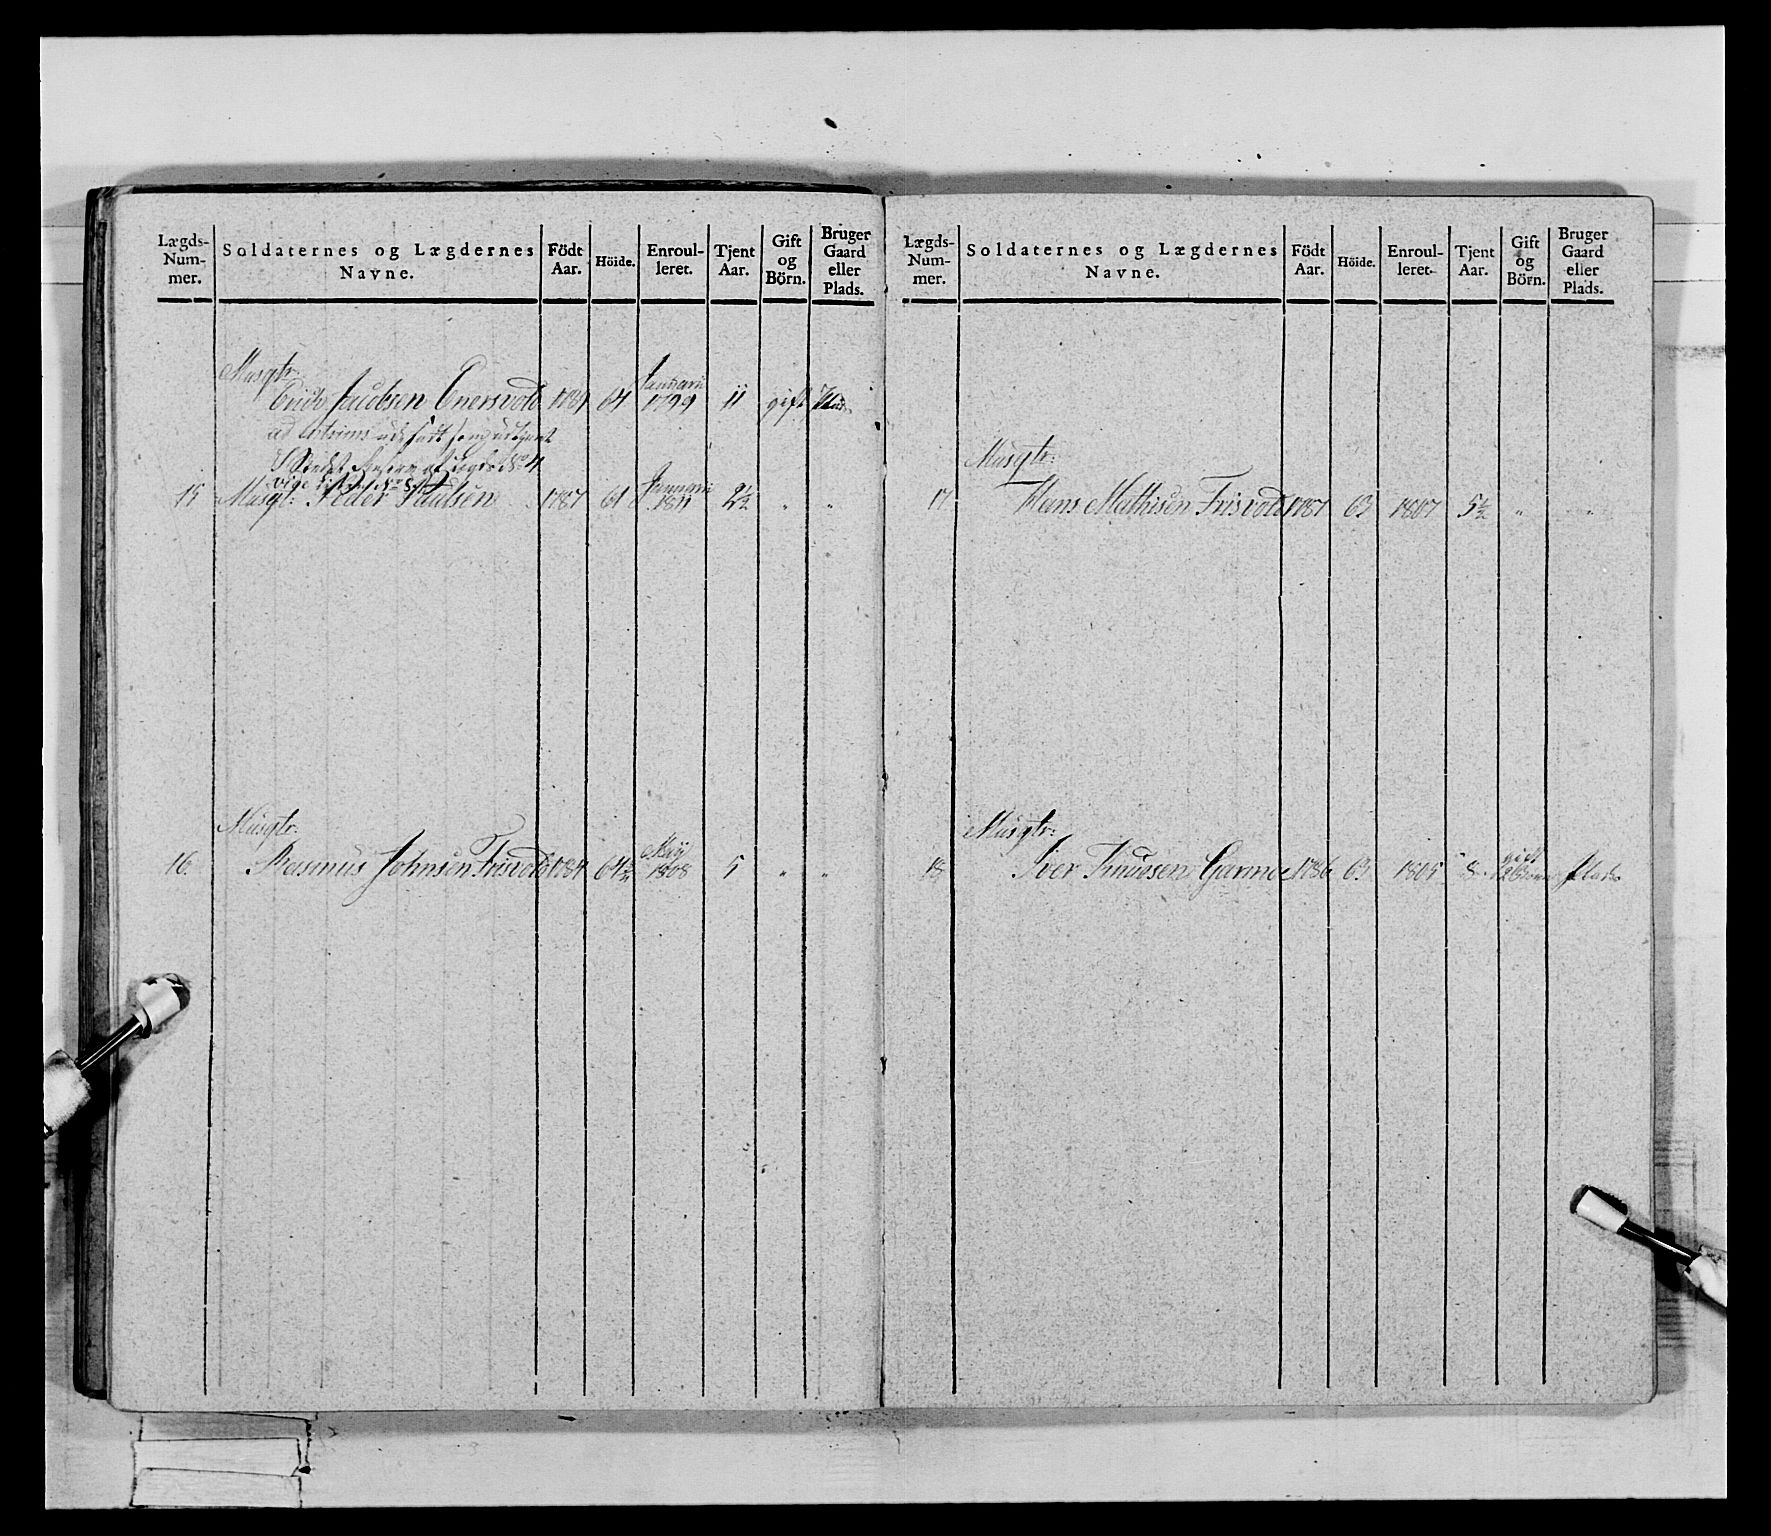 Lægds-Num-mer. Soldaternes og Lægdernes Navne. Födt Aar. Höide. Enroul-leret. Tjent Aar. Gift og Börn. Bruger Gaard eller Plads.
Musqtr:
Januarii
Jacobsen Enersvold 64 1799 11 gift
Januarii
15 Musqt: Peder Paulsen 1787 61 1811 2½ " "
Musqtr:
Maij
16. Rasmus Johnsen Frisvold 1808 5 " "
Lægds-Num-mer. Soldaternes og Lægdernes Navne. Födt Aar. Höide. Enroul-leret. Tjent Aar. Gift og Börn. Bruger Gaard eller Plads.
Musqtr:
17 Hans Mathisen Frisvold 1787 63 1807 5½ " "
Musqtr:
gift
18 Iver Knudsen Garmoe 1786 63 1805 8 Plads